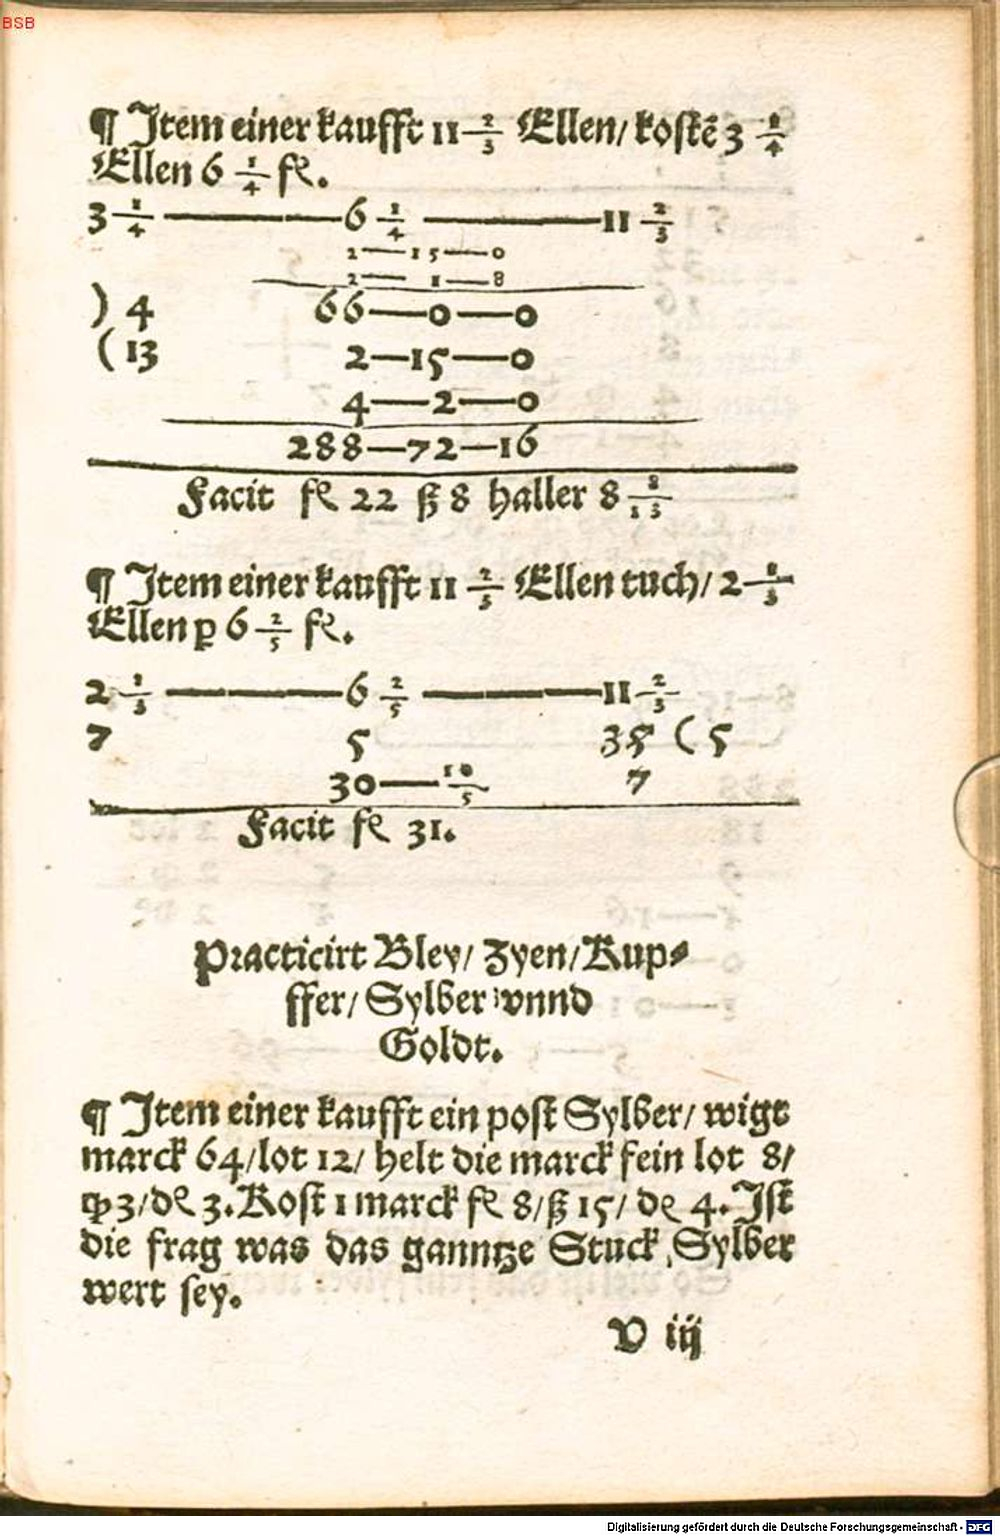 BSB
¶ Item einer kaufft 11 2/3 Ellen/ kostē 3 1/4
Ellen 6 1/4 fl.
3 1/4 —— 6 1/4 —— 11 2/3
2—15—0
2—1—8
) 4 66—0—0
( 13 2—15—0
4—2—0
288—72—16
Facit fl 22 ß 8 haller 8 8/13
¶ Item einer kaufft 11 2/3 Ellen tuch/ 2 1/3
Ellen p 6 2/5 fl.
2 1/3 —— 6 2/5 —— 11 2/3
7 5 35 ( 5
30—10/5 7
Facit fl 31.
Practicirt Bley/ Zyen/ Kup⸗
ffer/ Sylber vnnd
Goldt.
¶ Item einer kaufft ein post Sylber/ wigt
marck 64/ lot 12/ helt die marck fein lot 8/
qp 3/ dl 3. Kost 1 marck fl 8/ ß 15/ dl 4. Ist
die frag was das ganntze Stuck Sylber
wert sey.
V iij
Digitalisierung gefördert durch die Deutsche Forschungsgemeinschaft - DFG